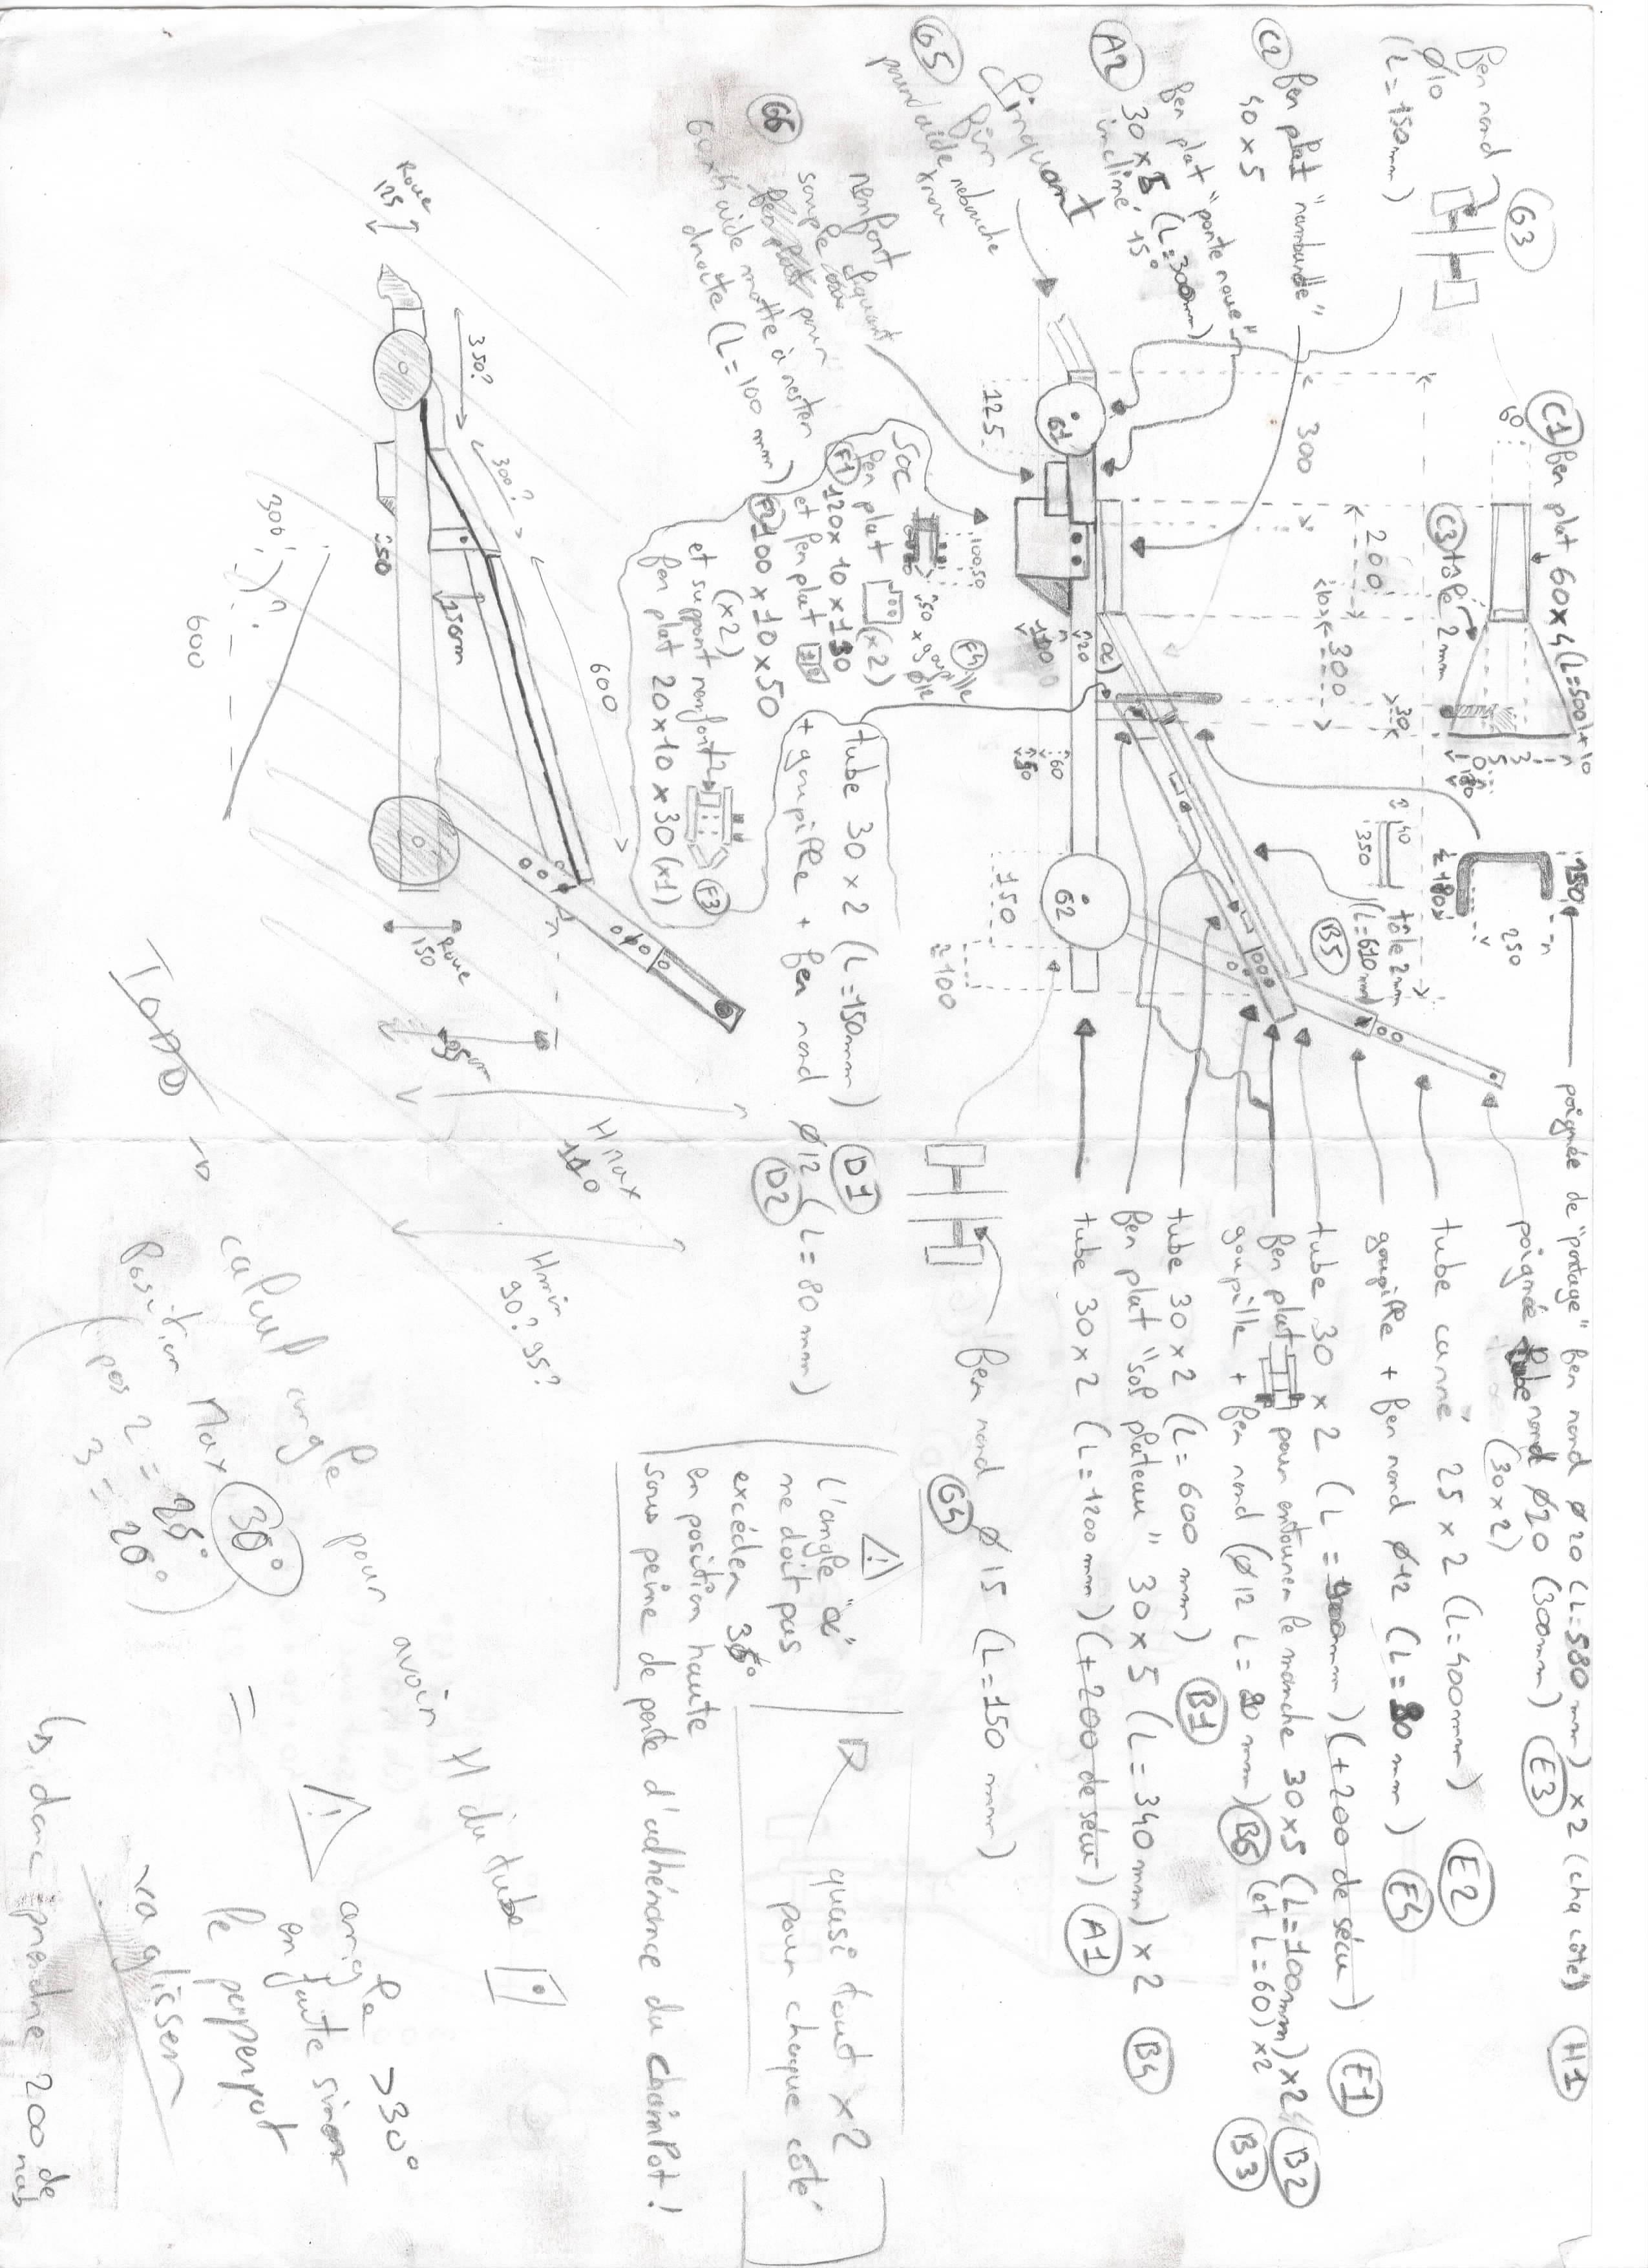 G3
fer rond
Ø10
(L=150mm)
C2 fer plat "rambarde"
40 x 5
A2 fer plat "porte roue"
30 x 5 (L=300mm)
incliné 15°
G5
pour aide
C1 fer plat 60x4 (L=500)x10
60
C3 tôle 2mm
300
200
300
30
10
125
G1
G2
150
≈100
α
20
60
50
100 50
150
250
180
40
350
tôle 2mm
(L=610mm)
B5
poignée de "portage" fer rond Ø20 (L=580mm) x2 (cha côté) H1
poignée tube rond Ø20 (300mm) E3
(30x2)
tube carré 25 x 2 (L=400mm) E2
goupille + fer rond Ø12 (L=80mm) E4
tube 30 x 2 (L=900mm) (+200 de sécu) E1
fer plat pour entourer le manche 30x5 (L=100mm) x2 B2
goupille + fer rond (Ø12 L=80mm) B6 (et L=60) x2 B3
tube 30 x 2 (L=600 mm) B1
fer plat "sol plateau" 30 x 5 (L=340mm) x 2 B4
tube 30 x 2 (L=1200mm) (+200 de sécu) A1
fer rond Ø15 (L=150 mm)
G4
G6
renfort
simple
aide motte à rester
droite (L=100 mm)
SOC
F1
fer plat (x2)
120 x 10 x 130
et fer plat
F2 100 x 10 x 50
(x2)
et support renfort
fer plat 20 x 10 x 30 (x1)
F3
F4
goupille
Ø12
tube 30 x 2 (L=150mm) D1
+ goupille + fer rond Ø12 (L=80mm)
D2
L'angle "α"
ne doit pas
excéder 30°
en position haute
sous peine de perte d'adhérence du chaimPot !
quasi tout x2
pour chaque côté
Roue
125
350?
300?
600
50
150mm
300
?
600
Roue
150
Hmax
110
Hmin
90? 95?
TODO
calcul angle pour avoir H du tube
Position Max 30°
(pos 2 = 25°
3 = 20°)
=
angle >30°
en faute sinon
le perperpot
va glisser
donc prendre 200 de